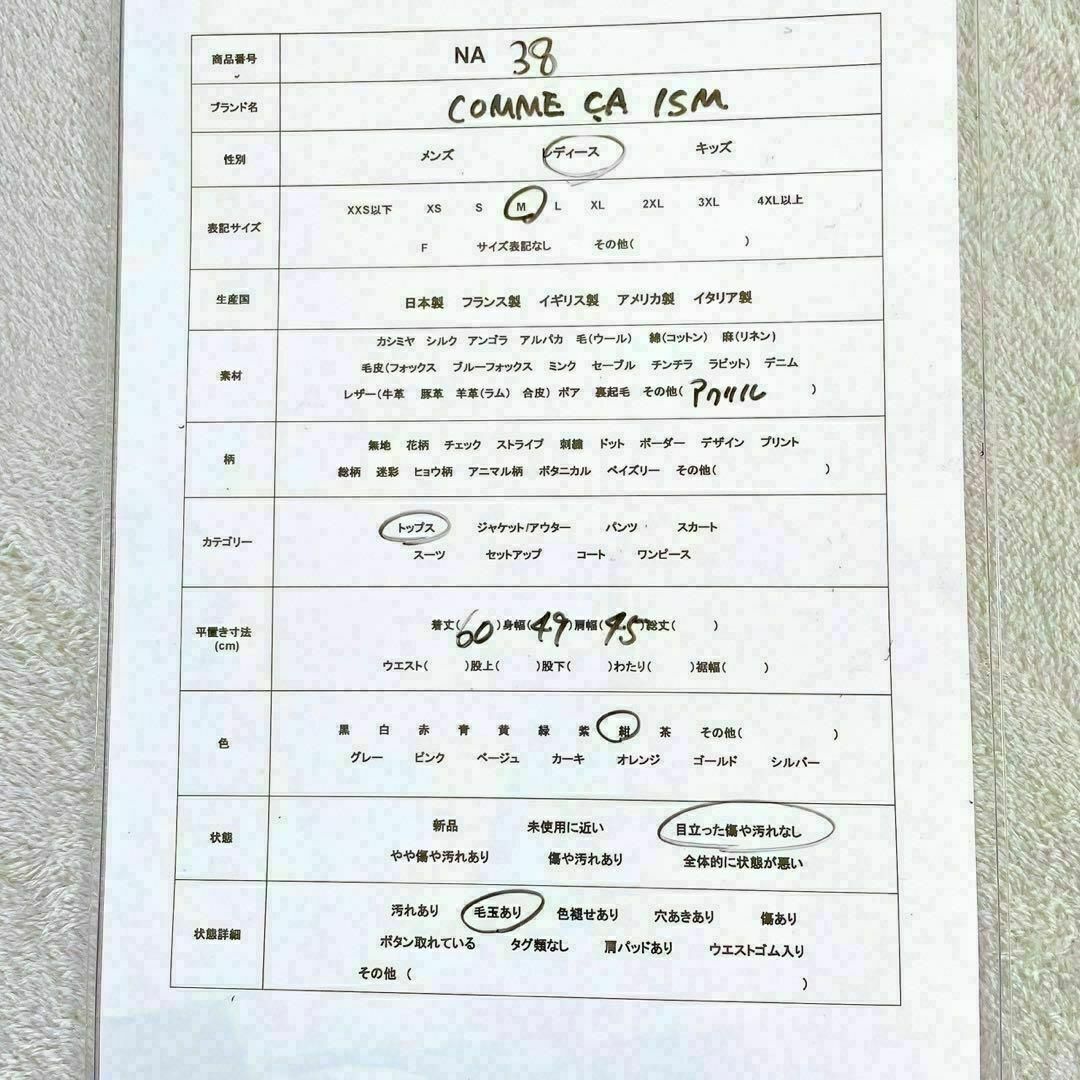 商品番号 NA 38
ブランド名 COMME ÇA ISM
性別 メンズ レディース キッズ
XXS以下 XS S M L XL 2XL 3XL 4XL以上
表記サイズ
F サイズ表記なし その他( )
生産国 日本製 フランス製 イギリス製 アメリカ製 イタリア製
カシミヤ シルク アンゴラ アルパカ 毛(ウール) 綿(コットン) 麻(リネン)
素材 毛皮(フォックス ブルーフォックス ミンク セーブル チンチラ ラビット) デニム
レザー(牛革 豚革 羊革(ラム) 合皮) ボア 裏起毛 その他( アクリル )
柄 無地 花柄 チェック ストライプ 刺繍 ドット ボーダー デザイン プリント
総柄 迷彩 ヒョウ柄 アニマル柄 ボタニカル ペイズリー その他( )
トップス ジャケット/アウター パンツ スカート
カテゴリー
スーツ セットアップ コート ワンピース
平置き寸法 着丈( 60 )身幅( 49 )肩幅( 45 )総丈( )
(cm)
ウエスト( )股上( )股下( )わたり( )裾幅( )
色 黒 白 赤 青 黄 緑 紫 紺 茶 その他( )
グレー ピンク ベージュ カーキ オレンジ ゴールド シルバー
状態 新品 未使用に近い 目立った傷や汚れなし
やや傷や汚れあり 傷や汚れあり 全体的に状態が悪い
汚れあり 毛玉あり 色褪せあり 穴あきあり 傷あり
状態詳細 ボタン取れている タグ類なし 肩パッドあり ウエストゴム入り
その他 ( )